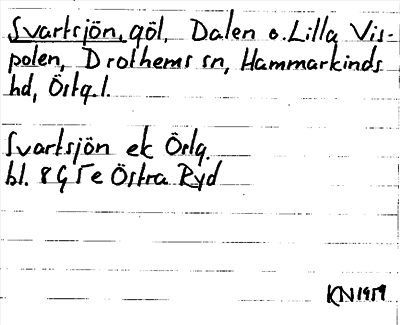 Svartsjön, göl, Dalen o. Lilla Vis-
polen, Drothems sn, Hammarkinds
hd, Östg.l.
Svartsjön ek Östg.
bl. 8G5e Östra Ryd
KN1959